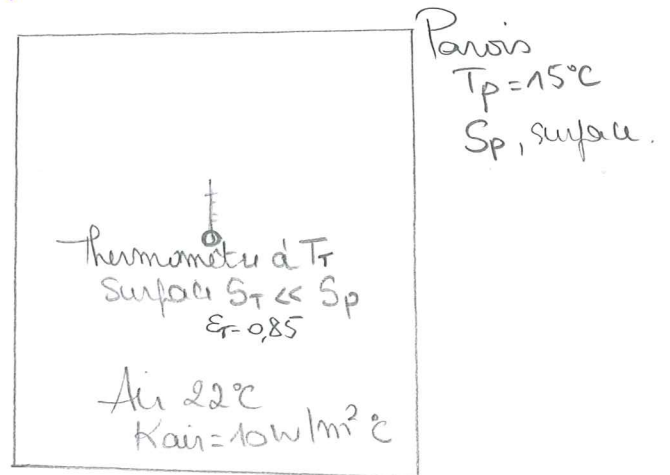 Parois
Tp=15°C
Sp, surface.
Thermomètre à TT
Surface ST << Sp
εT=0,85
Air 22°C
Kair=10W/m² °C